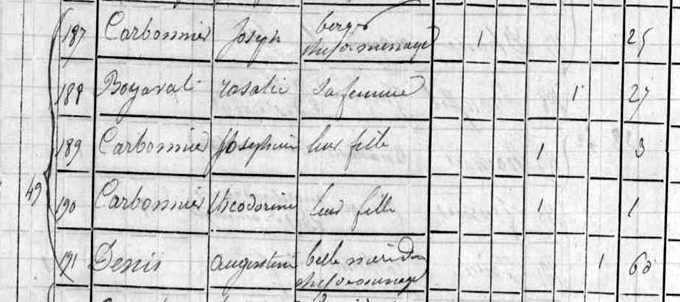 187 Carbonnier Joseph berger
chef de menage 1 25
188 Boyaval rosalie Sa femme 1 27
189 Carbonnier Josephine leur fille 1 3
49
190 Carbonnier theodorine leur fille 1 1
191 Denis augustine belle mere du
chef de menage 1 60